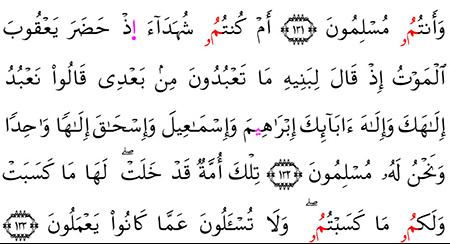 وَأَنتُمُۥ مُسْلِمُونَ ١٣١ أَمْ كُنتُمُۥ شُهَدَآءَ اِذْ حَضَرَ يَعْقُوبَ
اَلْمَوْتُ إِذْ قَالَ لِبَنِيهِ مَا تَعْبُدُونَ مِنۢ بَعْدِى قَالُوا۟ نَعْبُدُ
إِلَٰهَكَ وَإِلَٰهَ ءَابَآئِكَ إِبْرَٰهِيمَ وَإِسْمَٰعِيلَ وَإِسْحَٰقَ إِلَٰهًا وَٰحِدًا
وَنَحْنُ لَهُۥ مُسْلِمُونَ ١٣٢ تِلْكَ أُمَّةٌ قَدْ خَلَتْۖ لَهَا مَا كَسَبَتْ
وَلَكُمُۥ مَا كَسَبْتُمُۥۖ وَلَا تُسْـَٔلُونَ عَمَّا كَانُوا۟ يَعْمَلُونَ ١٣٣